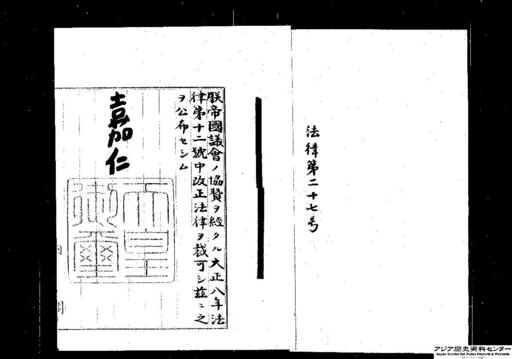 法律第二十七号
朕帝國議會ノ協贊ヲ經タル大正八年法
律第十二號中改正法律ヲ裁可シ茲ニ之
ヲ公布セシム
嘉仁
天皇
御璽
アジア歴史資料センター
Japan Center for Asian Historical Records